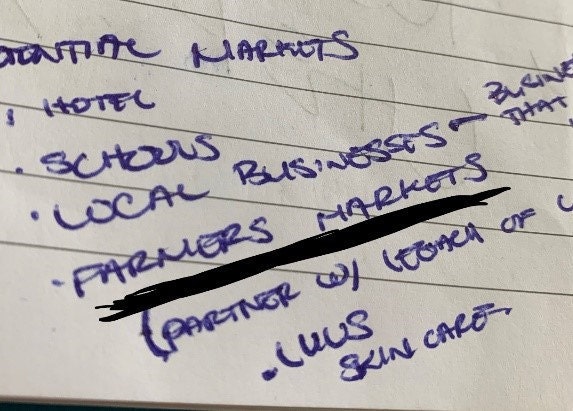 POTENTIAL MARKETS
• HOTEL
• SCHOOLS
• LOCAL BUSINESSES ← BUSINE
THAT
• FARMERS MARKETS
(PARTNER W/ LEGACY OF
• LUUS
SKIN CARE